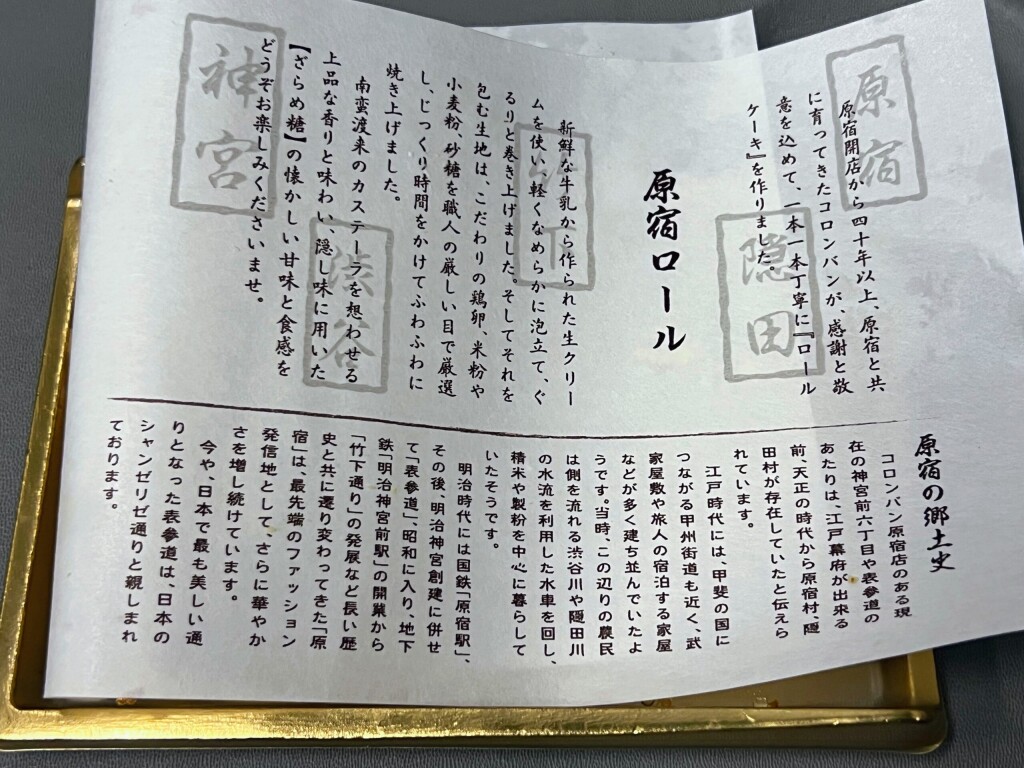 原宿
隠田
竹下
渋谷
神宮
原宿開店から四十年以上、原宿と共
に育ってきたコロンバンが、感謝と敬
意を込めて、一本一本丁寧に『ロール
ケーキ』を作りました。
原宿ロール
新鮮な牛乳から作られた生クリー
ムを使い、軽くなめらかに泡立て、ぐ
るりと巻き上げました。そしてそれを
包む生地は、こだわりの鶏卵、米粉や
小麦粉、砂糖を職人の厳しい目で厳選
し、じっくり時間をかけてふわふわに
焼き上げました。
南蛮渡来のカステーラを想わせる
上品な香りと味わい、隠し味に用いた
【ざらめ糖】の懐かしい甘味と食感を
どうぞお楽しみくださいませ。
原宿の郷土史
コロンバン原宿店のある現
在の神宮前六丁目や表参道の
あたりは、江戸幕府が出来る
前、天正の時代から原宿村、隠
田村が存在していたと伝えら
れています。
江戸時代には、甲斐の国に
つながる甲州街道も近く、武
家屋敷や旅人の宿泊する家屋
などが多く建ち並んでいたよ
うです。当時、この辺りの農民
は側を流れる渋谷川や隠田川
の水流を利用した水車を回し、
精米や製粉を中心に暮らして
いたそうです。
明治時代には国鉄「原宿駅」、
その後、明治神宮創建に併せ
て「表参道」、昭和に入り、地下
鉄「明治神宮前駅」の開業から
「竹下通り」の発展など長い歴
史と共に遷り変わってきた「原
宿」は、最先端のファッション
発信地として、さらに華やか
さを増し続けています。
今や、日本で最も美しい通
りとなった表参道は、日本の
シャンゼリゼ通りと親しまれ
ております。